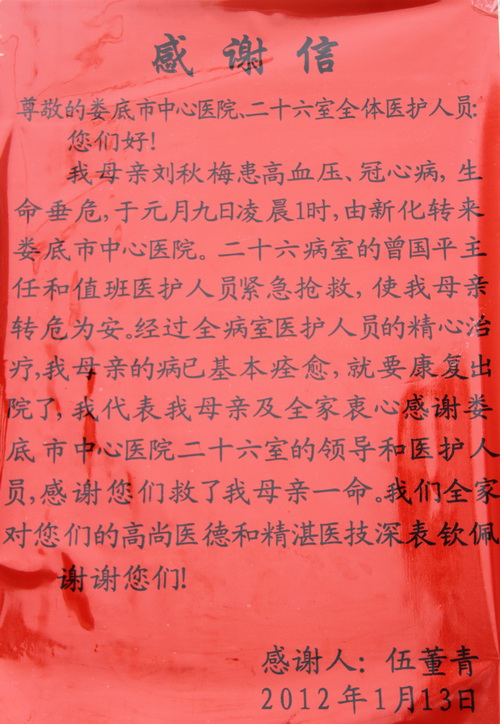 感谢信
尊敬的娄底市中心医院、二十六室全体医护人员:
您们好!
我母亲刘秋梅患高血压、冠心病,生
命垂危,于元月九日凌晨1时,由新化转来
娄底市中心医院。二十六病室的曾国平主
任和值班医护人员紧急抢救,使我母亲
转危为安。经过全病室医护人员的精心治
疗,我母亲的病已基本痊愈,就要康复出
院了,我代表我母亲及全家衷心感谢娄
底市中心医院二十六室的领导和医护人
员,感谢您们救了我母亲一命。我们全家
对您们的高尚医德和精湛医技深表钦佩
谢谢您们!
感谢人:伍董青
2012年1月13日